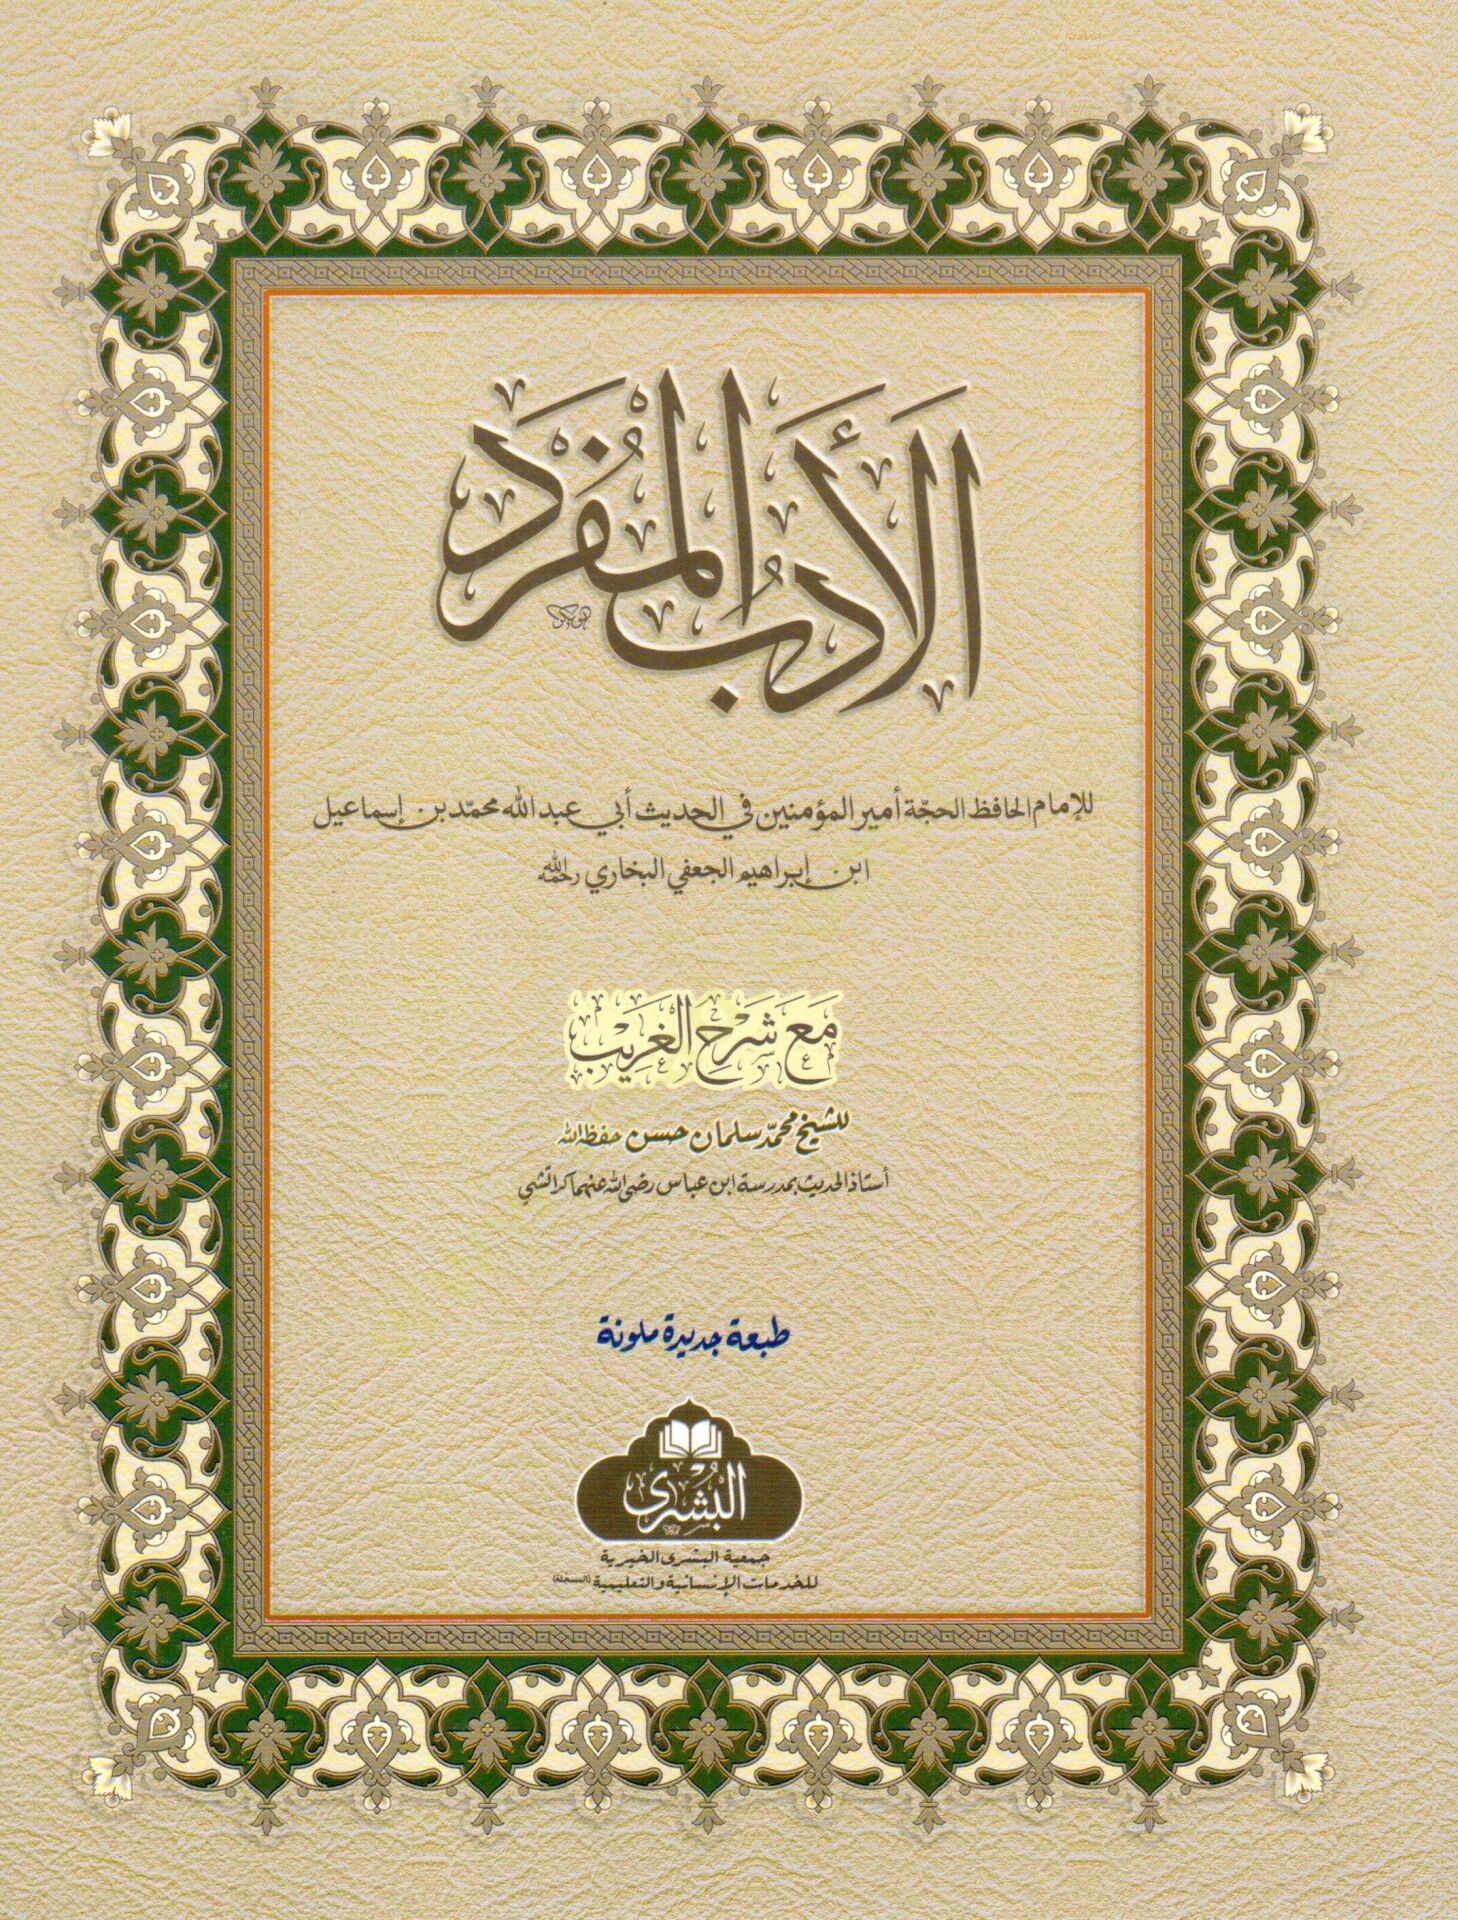 الأَدَبُ المُفرَد
للإمام الحافظ الحجّة أمير المؤمنين في الحديث أبي عبد الله محمّد بن إسماعيل
ابن إبراهيم الجعفي البخاري رحمه الله
مَع شَرح الغَرِيْب
للشيخ محمّد سلمان حسن حفظه الله
أستاذ الحديث بمدرسة ابن عباس رضي الله عنهما كراتشي
طبعة جديدة ملونة
البُشرى
جمعية البشرى الخيرية
للخدمات الإنسانية والتعليمية (المسجلة)